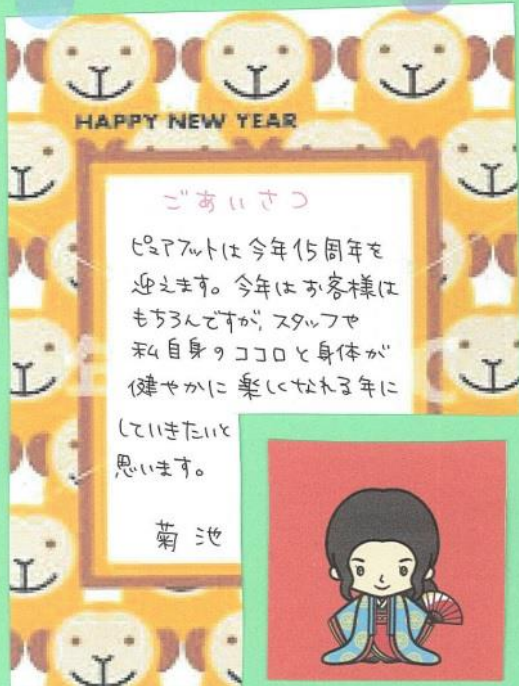 HAPPY NEW YEAR
ごあいさつ
ピュアフットは今年15周年を
迎えます。今年はお客様は
もちろんですが、スタッフや
私自身のココロと身体が
健やかに楽しくなれる年に
していきたいと
思います。
菊池